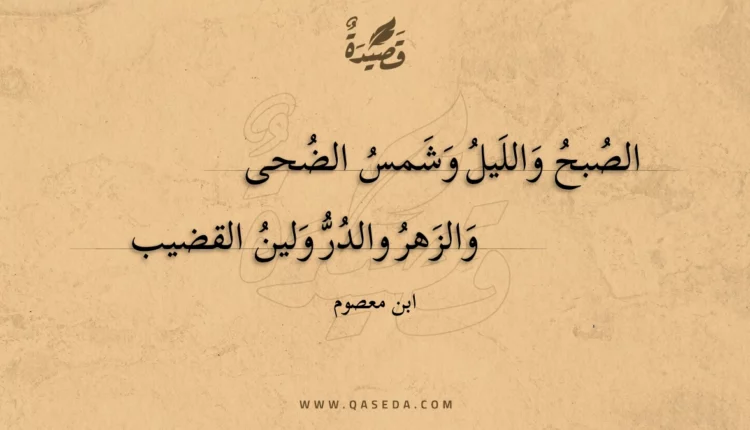 قَصِيْدَةٌ
الصُبحُ وَاللَيلُ وَشَمسُ الضُحى
وَالزَهرُ والدُرُّ وَلينُ القضيب
ابن معصوم
WWW.QASEDA.COM